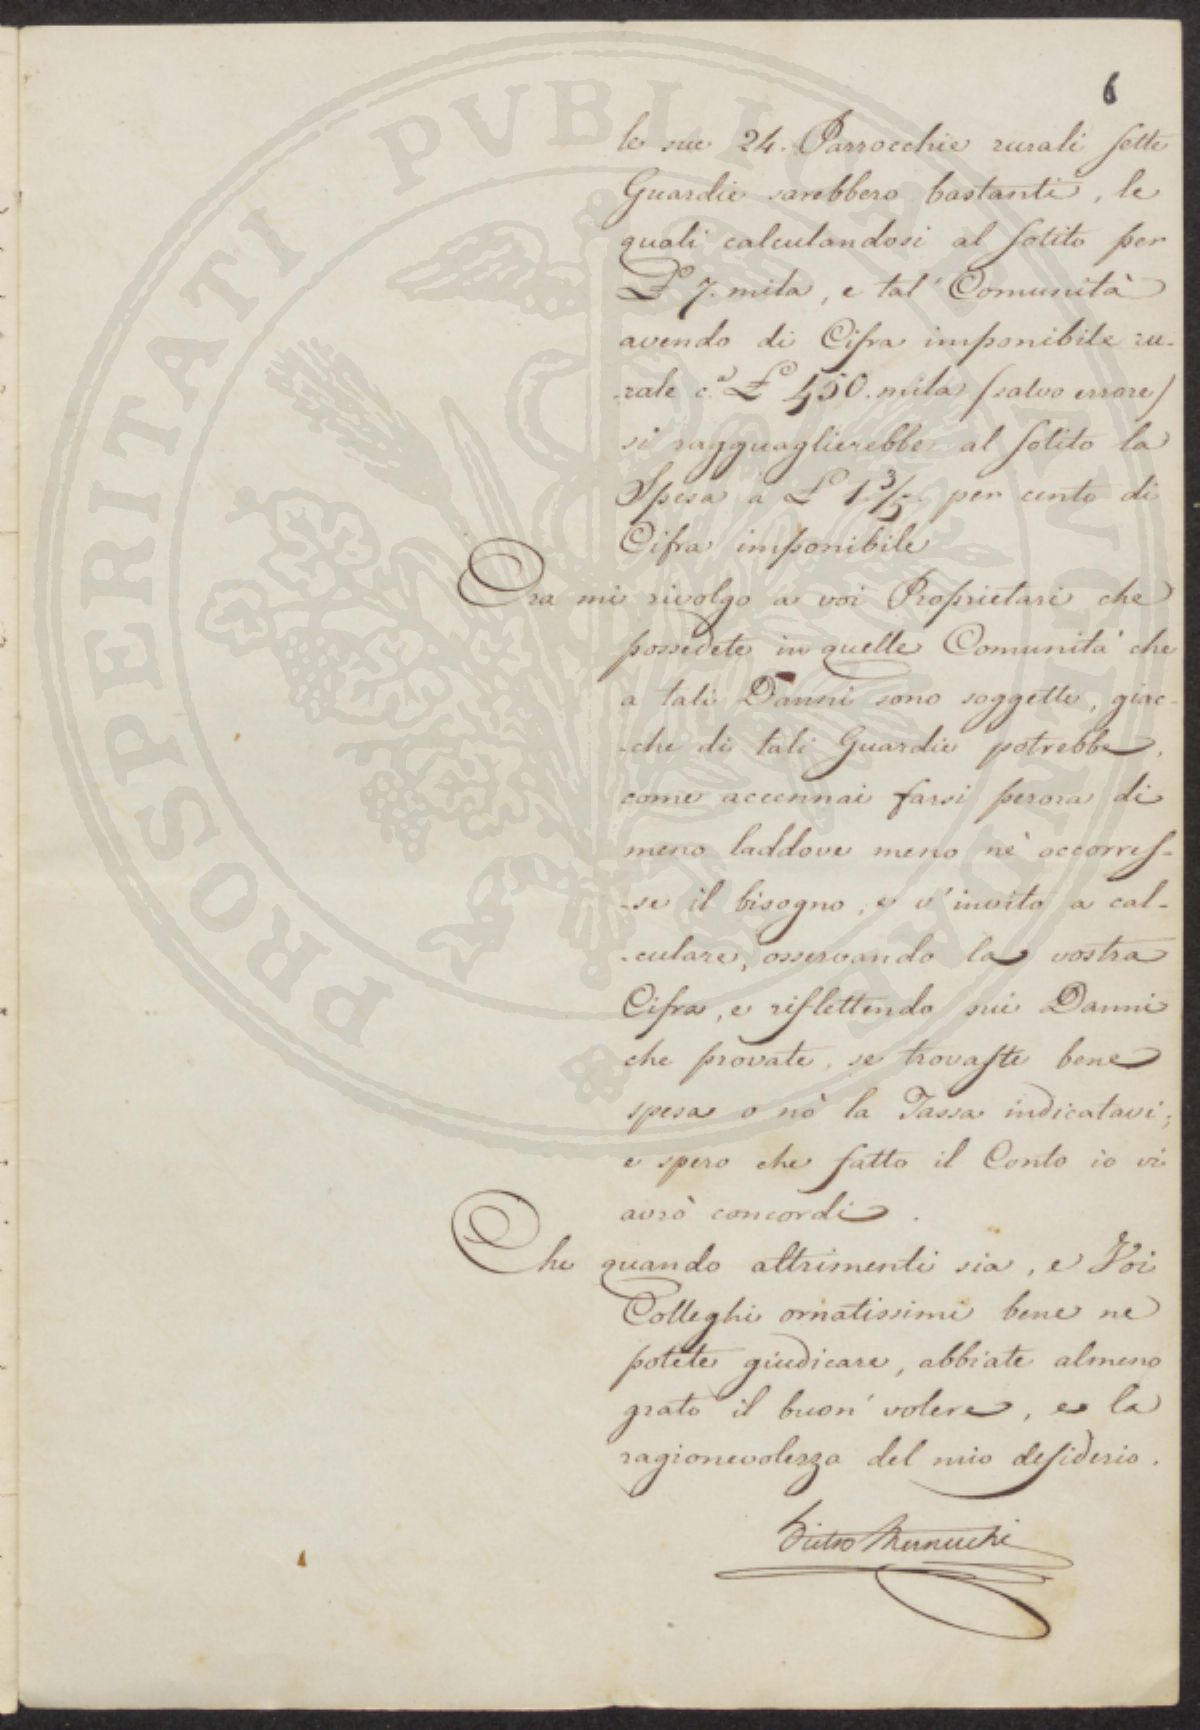 6
le sue 24. Parrocchie rurali sette
Guardie sarebbero bastanti, le
quali calculandosi al solito per
£ 7. mila, e tal' Comunità
avendo di Cifra imponibile ru-
-rale c.ª £ 450. mila (salvo errore)
si ragguaglierebbe al solito la
Spesa a £ 1 3/5. per cento di
Cifra imponibile
Ora mi rivolgo a voi Proprietari che
possedete in quelle Comunità che
a tali Danni sono soggette, giac-
-che di tali Guardie potrebbe,
come accennai farsi perora di
meno laddove meno nè occorres-
-se il bisogno, e v'invito a cal-
-culare, osservando la vostra
Cifra, e riflettendo sui Danni
che provate, se trovaste bene
spesa o nò la Tassa indicatavi;
e spero che fatto il Conto io vi
avrò concordi.
Che quando altrimenti sia, e Voi
Colleghi ornatissimi bene ne
potete giudicare, abbiate almeno
grato il buon' volere, e la
ragionevolezza del mio desiderio.
Pietro
PROSPERITATI PVBLICAE AVGENDAE